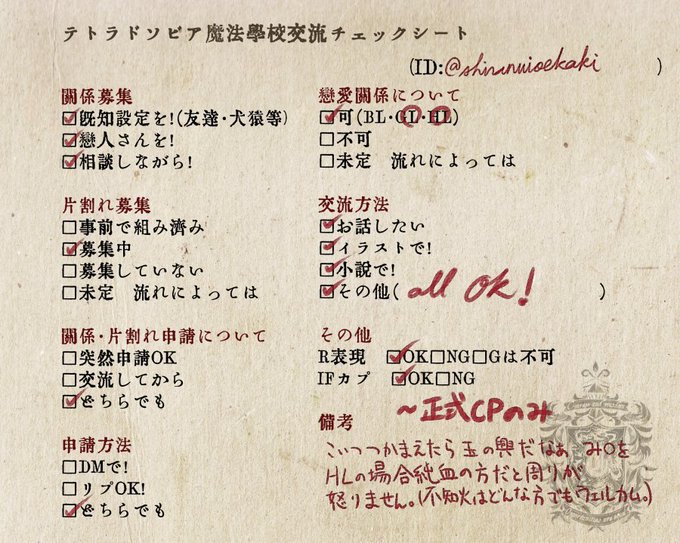 テトラドソピア魔法學校交流チェックシート
(ID:@shiranuioekaki )
關係募集
☑既知設定を!(友達・犬猿等)
☑戀人さんを!
☑相談しながら!
片割れ募集
☐事前で組み済み
☑募集中
☐募集していない
☐未定 流れによっては
關係・片割れ申請について
☐突然申請OK
☐交流してから
☑どちらでも
申請方法
☐DMで!
☐リプOK!
☑どちらでも
戀愛關係について
☑可(BL・GL・HL)
☐不可
☐未定 流れによっては
交流方法
☑お話したい
☑イラストで!
☑小説で!
☑その他( all OK! )
その他
R表現 ☑OK☐NG☐Gは不可
IFカプ ☑OK☐NG
～正式CPのみ
備考
こいつつかまえたら玉の輿だなぁ み○を
HLの場合純血の方だと周りが
怒りません。(不知火はどんな方でもウェルカム。)